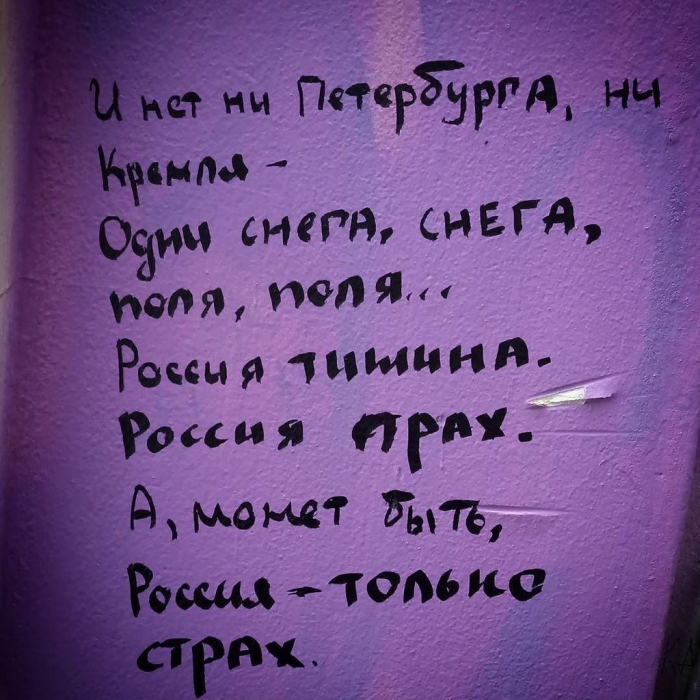 И нет ни Петербурга, ни
Кремля -
Одни снега, снЕГА,
поля, поля...
Россия тишина.
Россия прах.
А, может быть,
Россия - только
страх.